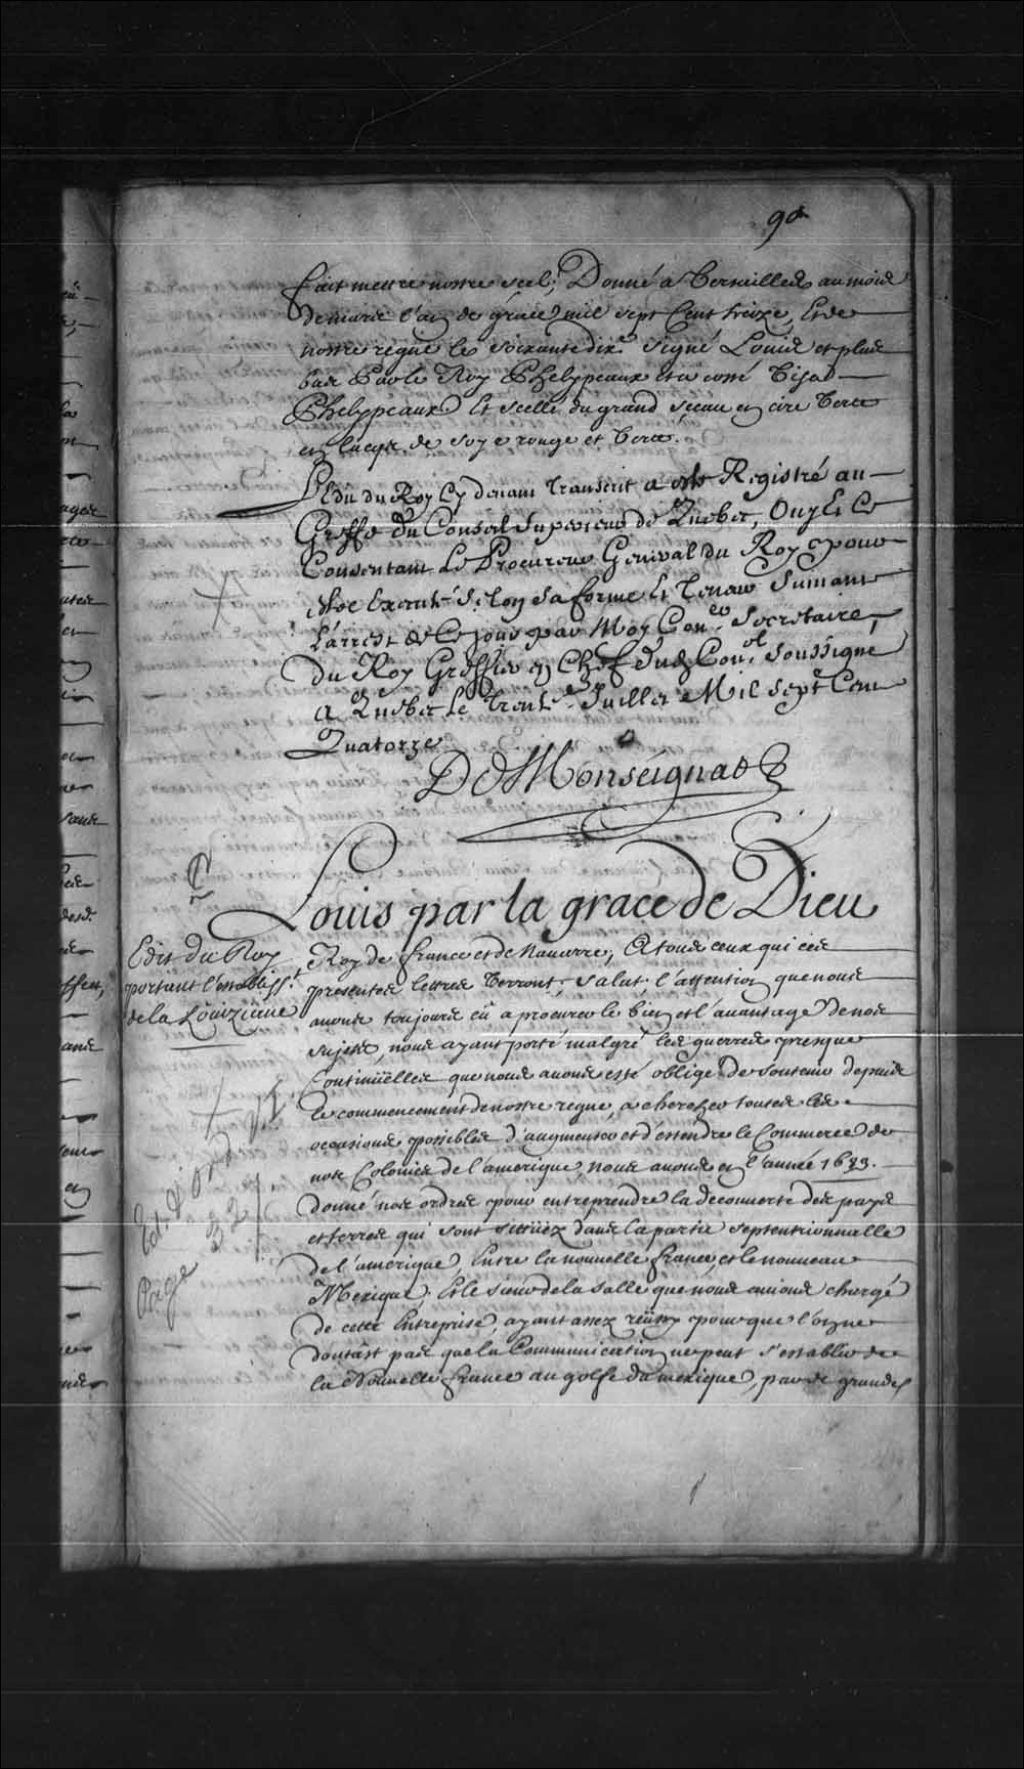 90
fait mettre nostre scel; Donné a Versailles au mois
de mars l'an de grace mil sept Cent treize, Et de
nostre regne le soixante dix.e signé Louis et plus
bas Par le Roy Phelyppeaux et a costé Visa
Phelyppeaux Et scellé du grand sceau en cire verte
en lacqs de soye rouge et verte.
L'Edit du Roy Cy devant transcrit a esté Registré au
Greffe du Conseil Superieur de Quebec, Ouy Et Ce
Consentant Le Procureur General du Roy pour
estre Executé Selon sa forme Et Teneur Suivant
L'arrest de Ce jour par Moy Con.er Secretaire,
Du Roy Greffier en Chef dud. Con.el Soussigné
a Quebec Le Trent.e Juillet Mil Sept Cent
Quatorze
De Monseignat
Louis par la grace de Dieu
Edit du Roy
portant l'establiss.t
de la Loüizianne
Roy de france et de Navarre; A tous ceux qui ces
presentes lettres verront; Salut; l'attention que nous
avons toujours eü a procurer le bien et l'avantage de nos
sujets, nous ayant porté malgré les guerres presque
Continüelles que nous avons esté obligé de soutenir depuis
le commencement de nostre regne, a chercher toutes les
occasions possibles d'augmenter et d'estendre le Commerce de
nos Colonies de l'amerique, nous avons en l'année 1683.
donné nos ordres pour entreprendre la decouverte des pays
et terres qui sont sittüez dans la partie septentrionnalle
de l'amerique, Entre la nouvelle france, et le nouveau
Mexique; Et le sieur de la Salle que nous avions chargé
de cette Entreprise, ayant assez reüssy pour que l'on ne
doutast pas que la Communication ne peut s'establir de
la Nouvelle france au golfe du mexique, par de grandes
Ed. & ord. VI.
Page 327